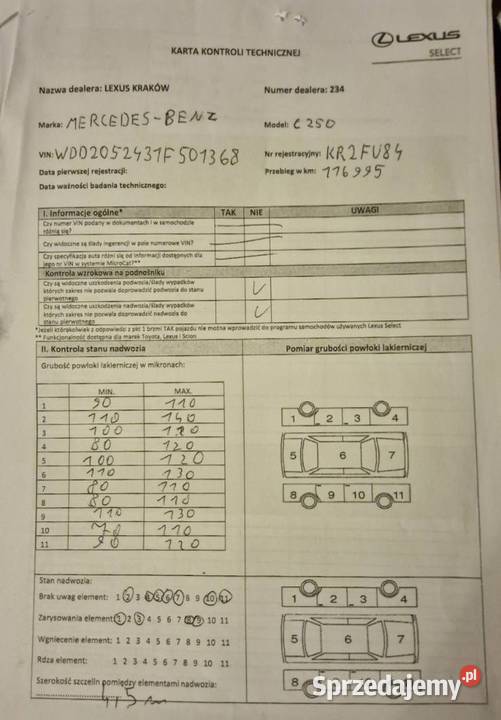 LEXUS
SELECT
KARTA KONTROLI TECHNICZNEJ
Nazwa dealera: LEXUS KRAKÓW Numer dealera: 234
Marka: MERCEDES-BENZ Model: C 250
VIN: WDD2052431F501368 Nr rejestracyjny: KR2FU84
Data pierwszej rejestracji: Przebieg w km: 116995
Data ważności badania technicznego:
I. Informacje ogólne* TAK NIE UWAGI
Czy numer VIN podany w dokumentach i w samochodzie
różnią się?
Czy widoczne są ślady ingerencji w pole numerowe VIN?
Czy specyfikacja auta różni się od informacji dostępnych dla
jego nr VIN w systemie MicroCat?**
Kontrola wzrokowa na podnośniku
Czy są widoczne uszkodzenia podwozia/ślady wypadków
których zakres nie pozwala doprowadzić podwozia do stanu
pierwotnego
Czy są widoczne uszkodzenia nadwozia/ślady wypadków
których zakres nie pozwala doprowadzić nadwozia do
stanu pierwotnego
*Jeżeli którakolwiek z odpowiedzi z pkt 1 brzmi TAK pojazdu nie można wprowadzić do programu samochodów używanych Lexus Select
** Funkcjonalność dostępna dla marek Toyota, Lexus i Scion
II. Kontrola stanu nadwozia Pomiar grubości powłoki lakierniczej
Grubość powłoki lakierniczej w mikronach:
MIN. MAX.
1 90 110
2 110 140
3 100 120
4 80 120
5 100 120
6 110 130
7 80 110
8 80 110
9 110 130
10 70 110
11 90 120
1 2 3 4
5 6 7
8 9 10 11
Stan nadwozia:
Brak uwag element: 1 2 3 4 5 6 7 8 9 10 11
Zarysowania element: 1 2 3 4 5 6 7 8 9 10 11
Wgniecenie element: 1 2 3 4 5 6 7 8 9 10 11
Rdza element: 1 2 3 4 5 6 7 8 9 10 11
Szerokość szczelin pomiędzy elementami nadwozia:
1 2 3 4
5 6 7
8
Sprzedajemy.pl